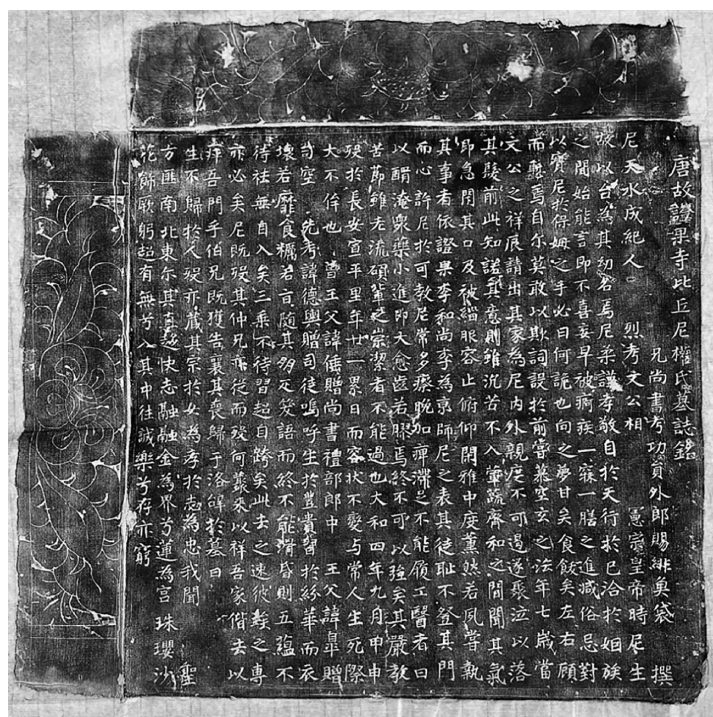 唐故證果寺比丘尼權氏墓誌銘
兄尚書考功員外郎賜緋魚袋 撰
尼天水成紀人 烈考文公相 憲宗皇帝時尼生
故以台為其幼名焉尼柔謹孝敬自於天行於已洽於姻族
之間始能言即不喜妄早被痾疾一寐一膳之進臧俗忌對
以實尼於保姆之手必曰何詭也向之夢甘矣食飫矣左右顧
而駭焉自尔莫敢以欺詞誤於前嘗慕空玄之法年七歲當
文公之祥辰請出其家為尼內外親度不可遏遂聚泣以落
其髮前此知識其意則雖沉苦不入葷蔬齋和之間聞其氣
即急閉其口及被緇服容止俯仰閑雅中度薰然若夙嘗執
其事者依證果李和尚李為京師尼之表其徒恥不登其門
而心許尼於可教尼常多瘵晚加痹滯足不能履工醫者曰
以酮淹衆藥小進即大愈齒若膠焉終不可以強矣其嚴教
苦節雖老流碩輩之崇潔者不能過也大和四年九月申申
歿於長安宣平里年廿一累日而容狀不變与常人生死際
大不侔也 曾王父諱倕贈尚書禮部郎中 王父諱皐贈
司空 先考諱德輿贈司徒嗚呼生於豊貴習於紛華而衣
壞若靡食糲若旨隨其灰笑語而終不能滑昏則五蘊不
待祛無自入矣三乘不待習超自跨矣此去之速彼契之專
亦必矣尼既歿其仲兄亦從而歿何叢來以祥吾家偕去以
痒吾門乎伯兄既獲告襄其喪歸于洛碑於墓曰
生不歸於人歿亦藏其宗於女為孝於志為忠我聞 聖
方匪南北東尔其直趍快志融融金為界兮蓮為宮 珠瓔沙
花飾厥躬超有無兮入其中往誠樂兮存亦窮